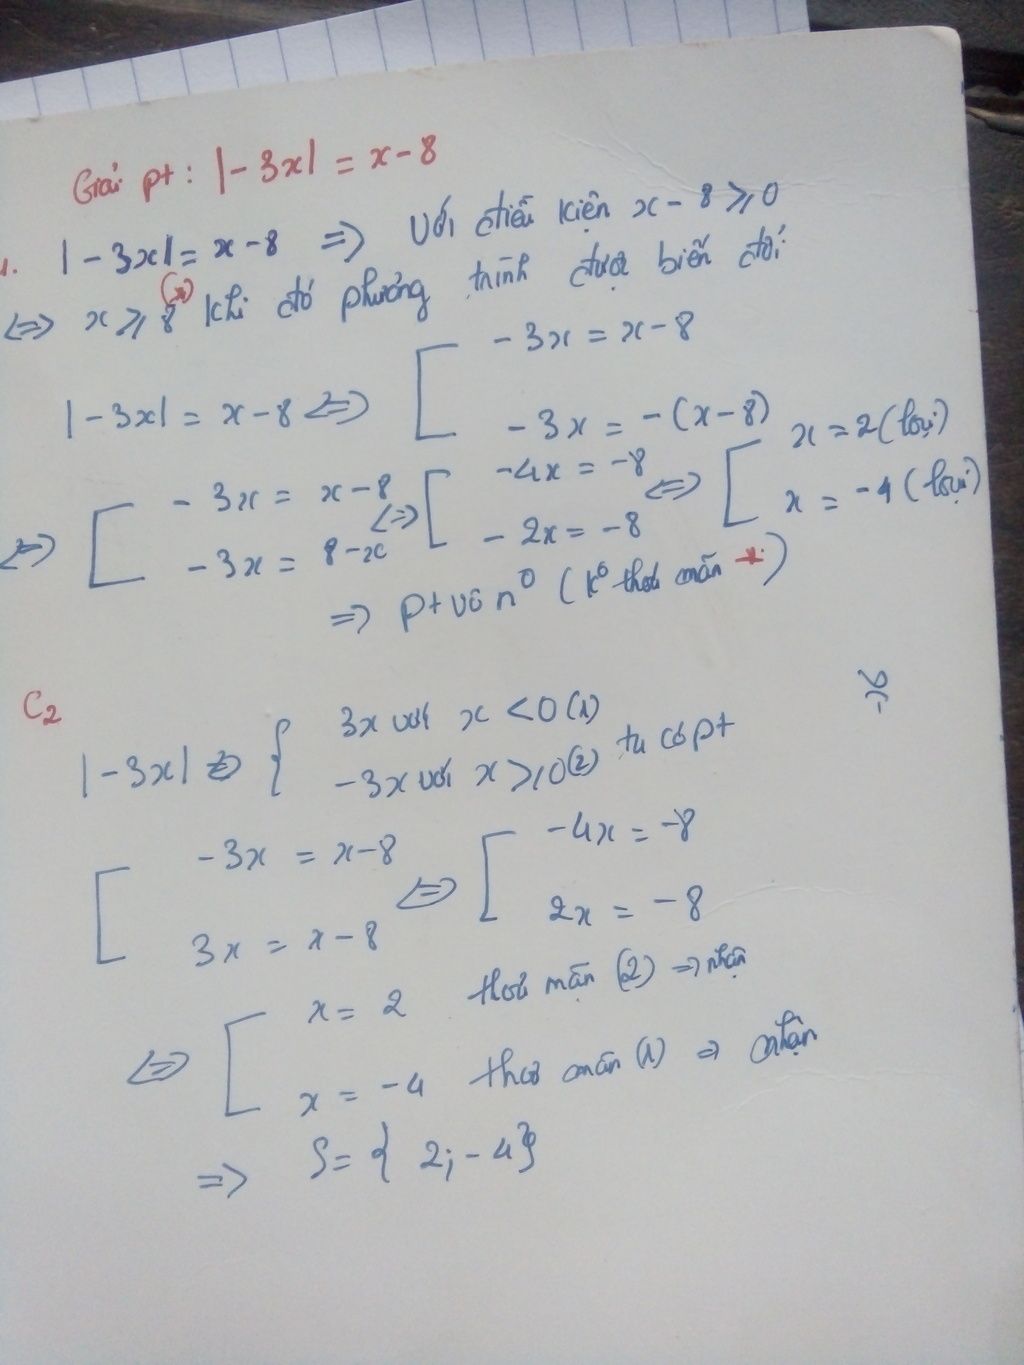 Giải pt: |-3x| = x-8
1. |-3x| = x-8 => Với điều kiện x-8 ⩾ 0
<=> x ⩾ 8 (*) khi đó phương trình được biến đổi:
|-3x| = x-8 <=> [ -3x = x-8
-3x = -(x-8)
<=> [ -3x = x-8 <=> [ -4x = -8 <=> [ x = 2 (loại)
-3x = 8-x -2x = -8 x = -4 (loại)
=> pt vô n⁰ (k⁰ thoả mãn *)
C2
|-3x| => { 3x với x < 0 (1)
-3x với x ⩾ 0 (2) ta có pt
[ -3x = x-8 <=> [ -4x = -8
3x = x-8 2x = -8
<=> [ x = 2 thoả mãn (2) => nhận
x = -4 thoả mãn (1) => nhận
=> S = { 2; -4 }